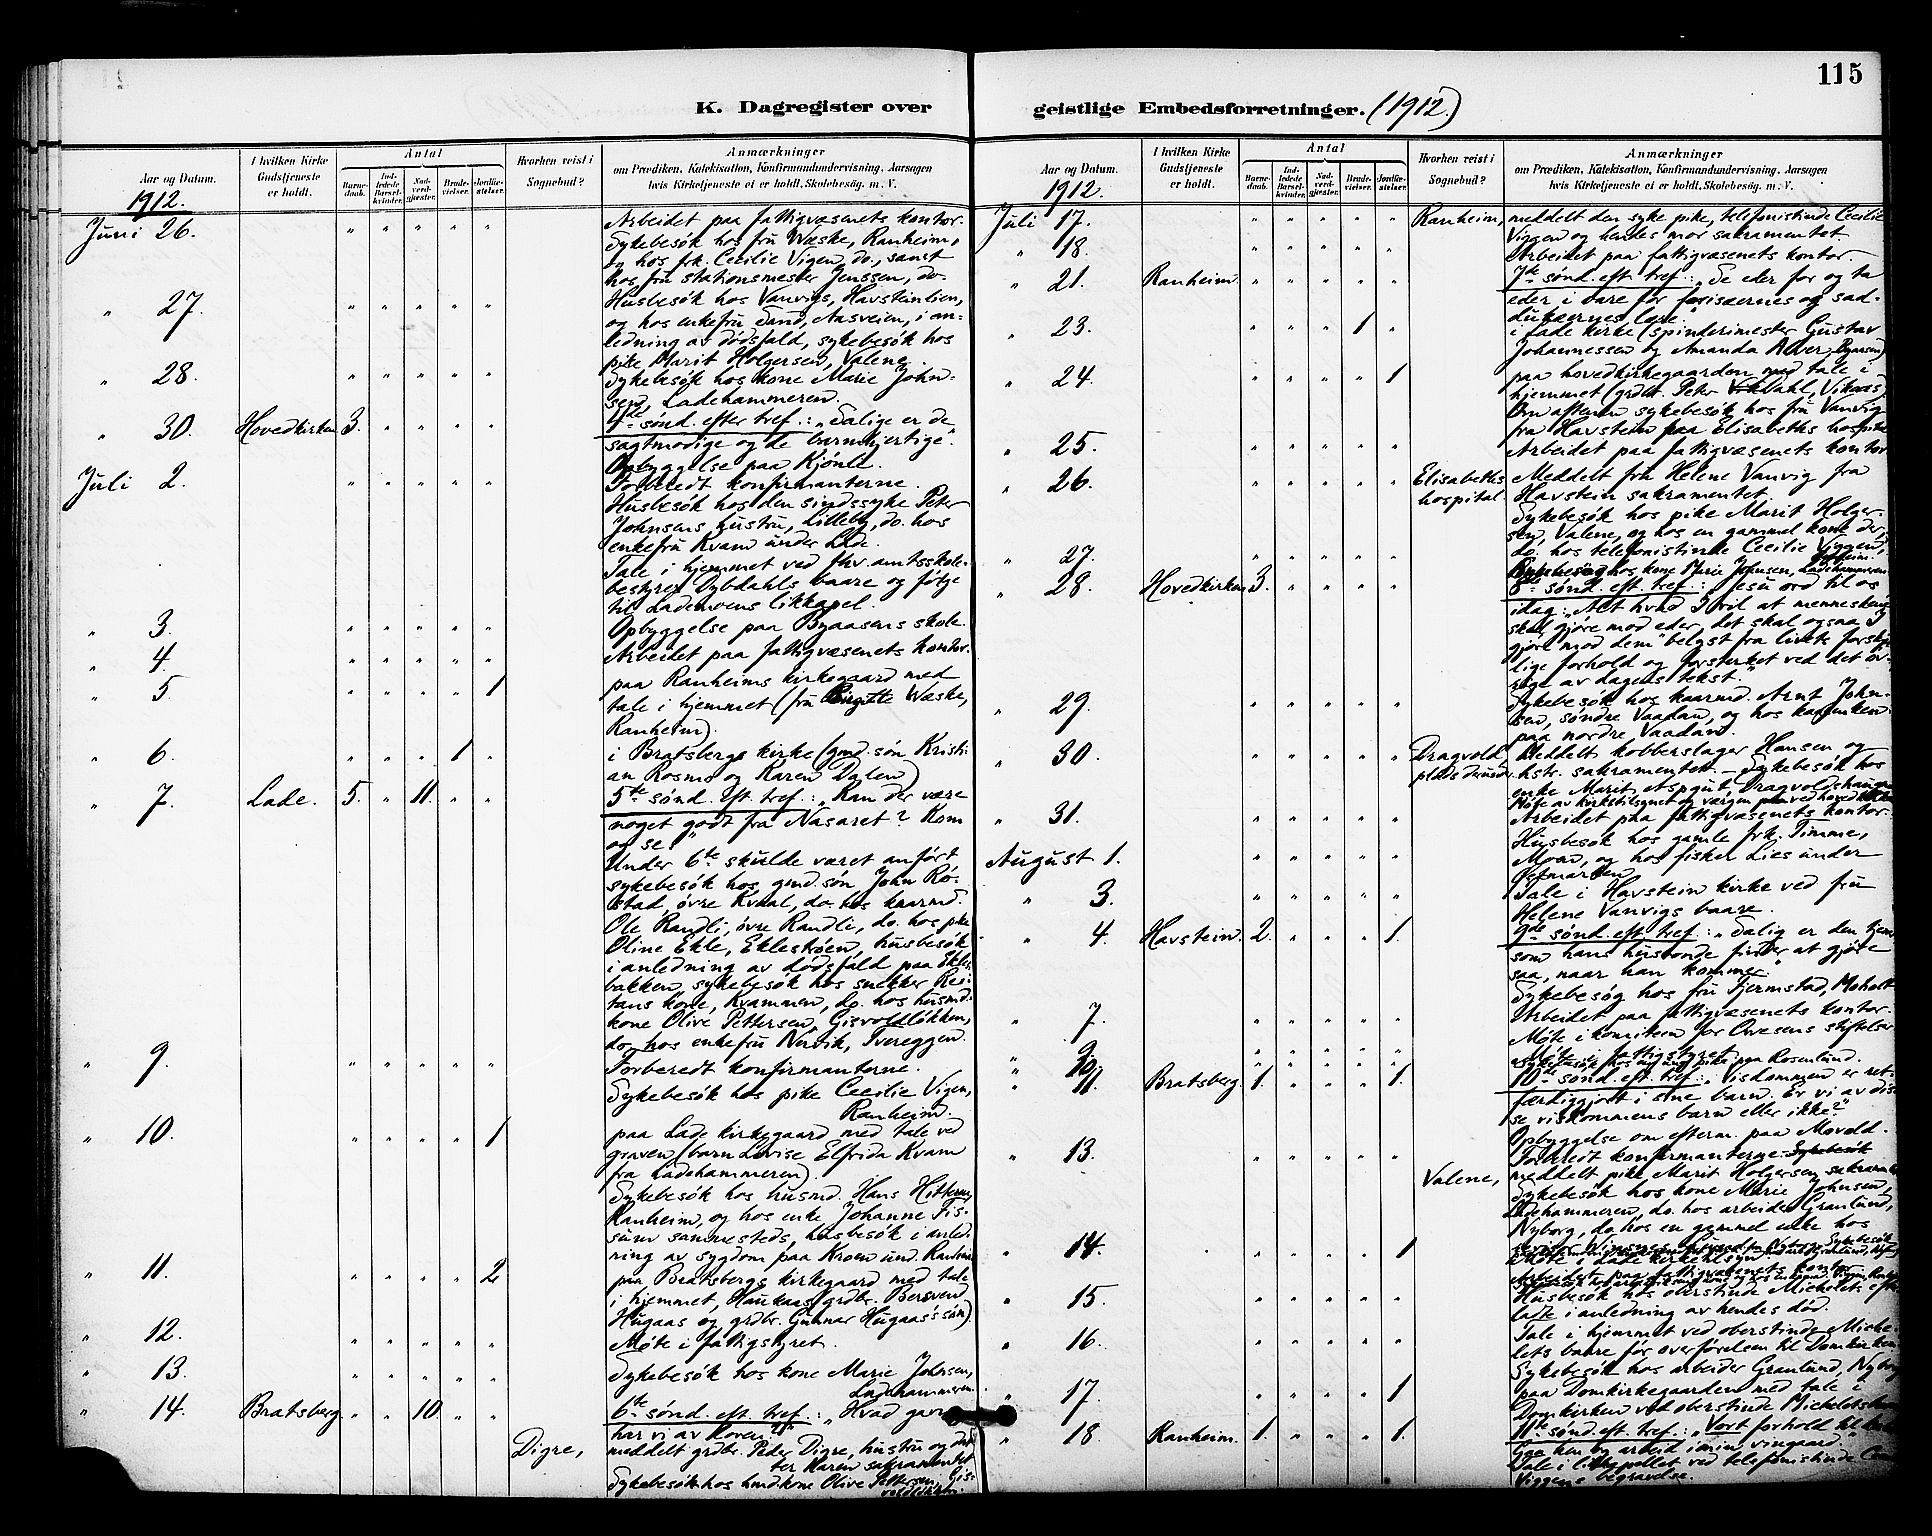 115
K. Dagregister over
geistlige Embedsforretninger. (1912.)
Aar og Datum.
1912.
I hvilken Kirke Gudstjeneste er holdt.
Antal
Barnedaab.
Indledede Barselkvinder.
Nadverdgjester.
Brudevielser.
Jordfæstelser.
Hvorhen reist i Sognebud?
Anmærkninger
om Prædiken, Katekisation, Konfirmandundervisning, Aarsagen
hvis Kirketjeneste ei er holdt, Skolebesøg. m. V.
Juni 26. " " " " " Arbeidet paa fattigvæsenets kontor.
Sykebesøk hos fru Wæske, Ranheim,
og hos frk. Cecilie Vigen, do., samt
hos fru stationsmester Jenssen, do.
" 27. " " " " " Husbesøk hos Vanvigs, Havsteinlien,
og hos enkefru Sand, Aasveien, i an-
ledning av dødsfald, sykebesøk hos
pike Marit Holgersen, Valene.
" 28. " " " " " Sykebesøk hos kone Marie John-
sen, Ladehammeren.
" 30. Hovedkirken 3. " " " " 4de sønd. efter tref.: "Salige er de
sagtmodige og de barmhjertige".
Opbyggelse paa Kjønle.
Juli 2. " " " " " Forberedt konfirmanterne.
Husbesøk hos den sindssyke Peter
Johnsens hustru, Lilleby, do. hos
enkefru Kvam under Lade.
Tale i hjemmet ved fhv. amtsskole-
bestyrer Dybdahls baare og følge
til Lademoens likkapel.
" 3. " " " " " Opbyggelse paa Byaasens skole.
" 4. " " " " " Arbeidet paa fattigvæsenets kontor.
" 5. " " " " 1 paa Ranheims kirkegaard med
tale i hjemmet (fru Birgitte Wæske,
Ranheim).
" 6. " " " 1 " i Bratsbergs kirke (gmd. søn Kristi-
an Rosmo og Karen Dalen)
" 7. Lade. 5. " 11. " " 5te sønd. eft. tref.: "Kan der være
noget godt fra Nasaret? Kom
og se"
Under 6te skulde været anført
sykebesøk hos gmd. søn John Rø-
stad, øvre Kvaal, do. hos kaarmd.
Ole Randli, øvre Randli, do. hos pike
Oline Ekle, Eklestrøen, husbesøk
i anledning av dødsfald paa Ekle-
bakken, sykebesøk hos snekker Rei-
tans kone, Kvammen, do. hos husmd.
kone Olive Pettersen, Gisvoldløkken,
do. hos enkefru Nervik, Tvereggen.
" 9. " " " " " Forberedt konfirmanterne.
Sykebesøk hos pike Cecilie Vigen,
Ranheim.
" 10. " " " " 1 paa Lade kirkegaard med tale ved
graven (barn Lovise Elfrida Kvam
fra Ladehammeren).
Sykebesøk hos husmd. Hans
Ranheim, og hos enke Johanne Tis-
sammesteds, husbesøk i anled-
ning av sygdom paa Kroen und. Ranheim
" 11. " " " " 2 paa Bratsbergs kirkegaard med tale
i hjemmet, Haukaas (grdbr. Bersvend
Hugaas og grdbr. Gunnar Hugaas's søn).
" 12. " " " " " Møte i fattigstyret.
" 13. " " " " " Sykebesøk hos kone Marie Johnsen,
Ladehammeren.
" 14. Bratsberg. " " 10. " " 6te sønd. eft. tref.: "Hvad gavn
har vi av loven?"
Digre, meddelt grdbr. Peder Digre, hustru og dat-
ter Karen sakramentet
Sykebesøk hos husmd.kone Olive Pettersen, Gis-
voldløkken.
Aar og Datum.
1912.
I hvilken Kirke Gudstjeneste er holdt.
Antal
Barnedaab.
Indledede Barselkvinder.
Nadverdgjester.
Brudevielser.
Jordfæstelser.
Hvorhen reist i Sognebud?
Anmærkninger
om Prædiken, Katekisation, Konfirmandundervisning, Aarsagen
hvis Kirketjeneste ei er holdt, Skolebesøg. m. V.
Juli 17. " " " " " Ranheim, meddelt den syke pike, telefonistinde Cecilie
Viggen og hendes mor sakramentet.
" 18. " " " " " Arbeidet paa fattigvæsenets kontor.
" 21. Ranheim. " " " " " 7de sønd. eft. tref.: "Se eder for og ta
eder i vare for farisæernes og sad-
dukæernes lære."
" 23. " " " 1 " i Lade kirke (spinderimester Gustav
Johannessen og Amanda Alver, Byaasen)
" 24. " " " " 1 paa hovedkirkegaarden med tale i
hjemmet (grdbr. Peter Dahl, Vikaas)
Om aftenen sykebesøk hos fru Vanvig
fra Havstein paa Elisabeths hospital
" 25. " " " " " Arbeidet paa fattigvæsenets kontor
" 26. " " " " " Elisabeths hospital. Meddelt fru Helene Vanvig fra
Havstein sakramentet.
Sykebesøk hos pike Marit Holger-
sen, Valene, og hos en gammel kone der,
" 27. " " " " " do. hos telefonistinde Cecilie Viggen,
Ranheim.
Sykebesøg hos kone Marie Johnsen, Ladehammeren
" 28. Hovedkirken 3. " " " " 8de sønd. eft. tref.: Jesu ord til os
idag: "Alt hvad I vil at menneskene
skal gjøre mod eder, det skal ogsaa I
gjøre mod dem" belyst fra livets forskjel-
lige forhold og forsterket ved det øv-
rige av dagens tekst.
" 29. " " " " " Sykebesøk hos kaarmd. Arnt John-
sen, søndre Vaadan, og hos kaarenken
paa nordre Vaadan.
" 30. " " " " " Dragvold plads derunder. Meddelt kobberslager Hansen og
hstr. sakramentet. – Sykebesøk hos
enke Maret Aspgut, Dragvoldshaugen
Møte av kirketilsynet og værgen ved hovedkirken
" 31. " " " " " Arbeidet paa fattigvæsenets kontor.
Husbesøk hos gamle frk. Timme,
August 1. " " " " " Moan, og hos fisker Lies under
" 3. " " " " " Tale i Havstein kirke ved fru
Helene Vanvigs baare.
" 4. Havstein. 2. " " " 1. 9de sønd. eft. tref.: "Salig er den tjener
som hans husbonde finder at gjøre
saa, naar han kommer."
Sykebesøg hos fru Fjermstad, Moholt
" 7. " " " " " Arbeidet paa fattigvæsenets kontor.
Møte i komiteen for Owesens stiftelser
" 9. " " " " " Møte i fattigstyret
" 10. " " " " " pike paa Rosenlund.
" 11. Bratsberg. 1. " " " 1. 10de sønd. eft. tref.: "Visdommen er ret-
færdiggjort i sine barn. Er vi av dis-
se visdommens barn eller ikke?"
Opbyggelse om efterm. paa Movold.
" 13. " " " " " Forberedt konfirmanterne. Sykebesøk
Valene, meddelt pike Marit Holgersen sakramentet
Sykebesøk hos kone Marie Johnsen,
Ladehammeren, do. hos arbeider Granlund,
Nyborg, do. hos en gammel enke hos
" 14. " " " " 1
Møte i Lade kirketilsyn
Arbeidet paa fattigvæsenets kontor
" 15. " " " " " Husbesøk hos oberstinde Michelets efter-
ladte i anledning av hendes død.
" 16. " " " " " Tale i hjemmet ved oberstinde Miche-
lets baare før overførelsen til Domkirken
Sykebesøk hos arbeider Granlund, Nyborg
" 17. " " " " 1 paa Domkirkegaarden med tale i
Domkirken ved oberstinde Michelets
" 18. Ranheim. 1. " " " 1. 11te sønd. eft. tref.: "Vort forhold til
Gaa hen og arbeid i min vingaard."
Tale i likkapellet ved telefonistinde
Viggens begravelse.